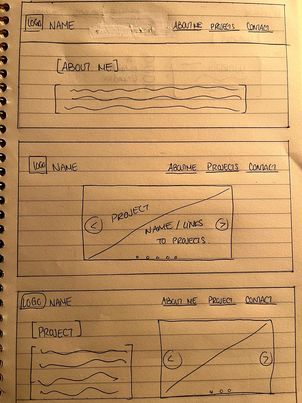 LOGO NAME ABOUT ME PROJECTS CONTACT
[ABOUT ME]
LOGO NAME ABOUT ME PROJECTS CONTACT
PROJECT
NAME / LINKS
TO PROJECTS
LOGO NAME ABOUT ME PROJECT CONTACT
[PROJECT]